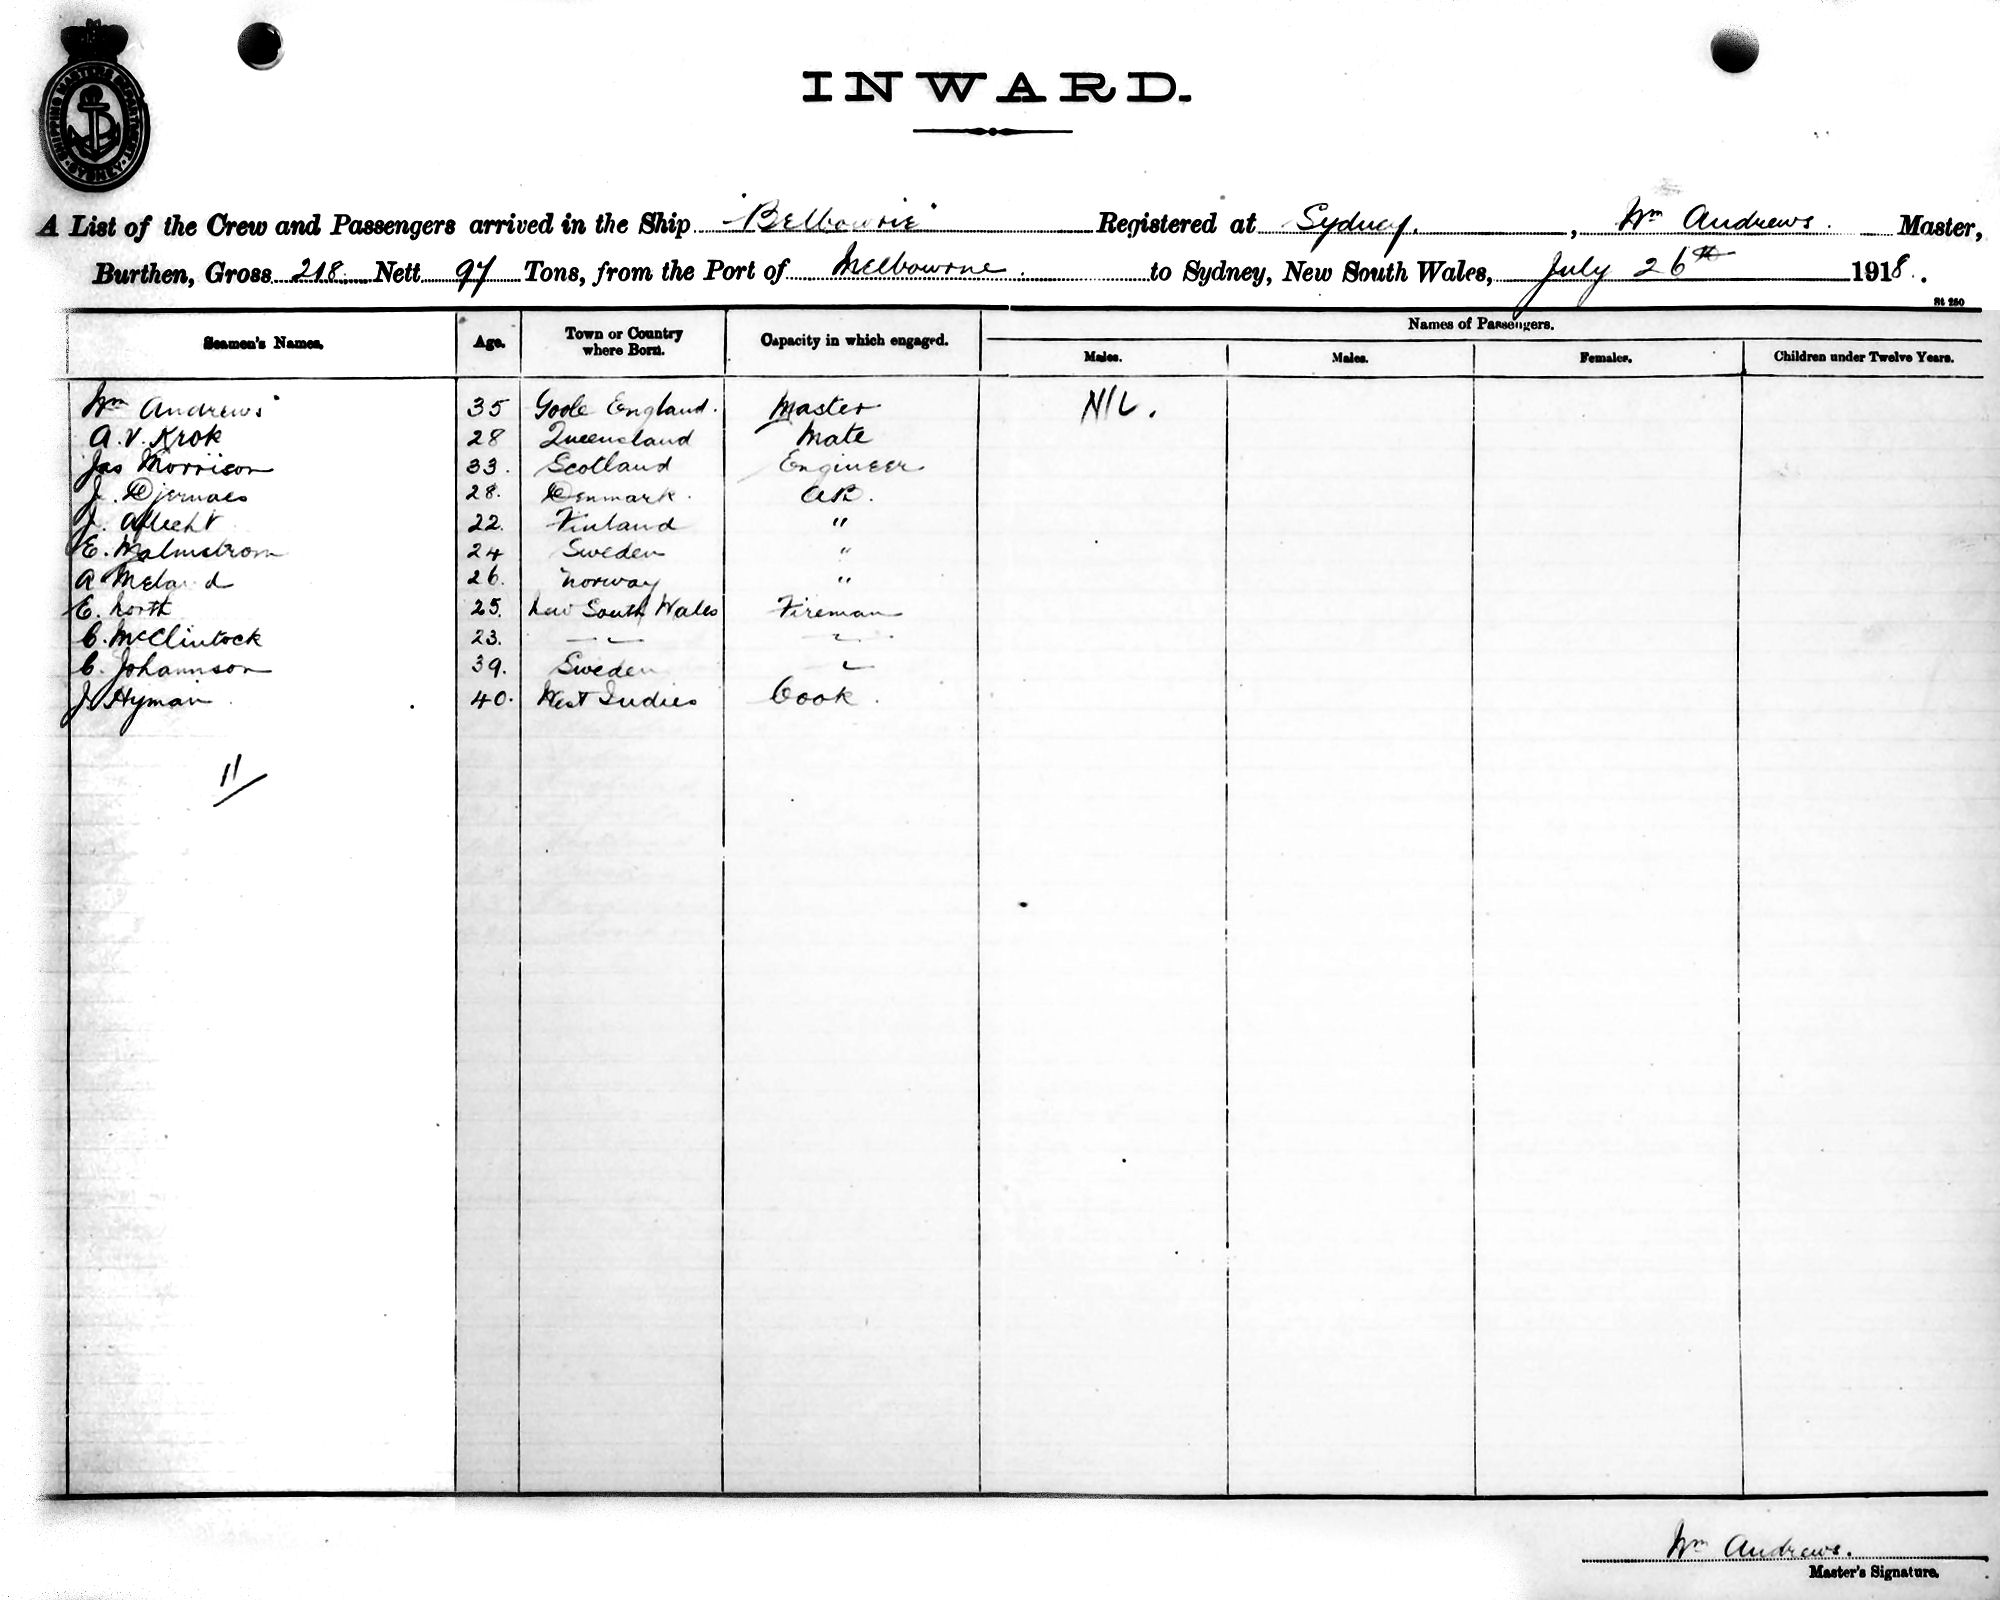 SHIPPING MASTERS DEPARTMENT SYDNEY
INWARD.
A List of the Crew and Passengers arrived in the Ship "Belbowrie" Registered at Sydney. , Wm Andrews. Master,
Burthen, Gross 218 Nett 97 Tons, from the Port of Melbourne. to Sydney, New South Wales, July 26th 1918.
St 280
Seamen's Names. Age. Town or Country where Born. Capacity in which engaged. Names of Passengers.
Males. Males. Females. Children under Twelve Years.
Wm Andrews 35 Goole England. Master NIL.
A.V. Krok 28 Queensland Mate
Jas Morrison 33. Scotland Engineer
J. Djernaes 28. Denmark. AB.
J. 22. Finland "
E. Malmstrom 24 Sweden "
A Meland 26. Norway "
E. North 25. New South Wales Fireman
C. McClintock 23. — " — "
C. Johannson 39. Sweden "
J. Hyman 40. West Indies Cook.
11
Wm Andrews.
Master's Signature.